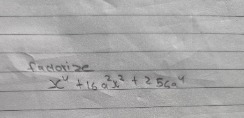 factorize
x⁴ + 16a²x² + 256a⁴